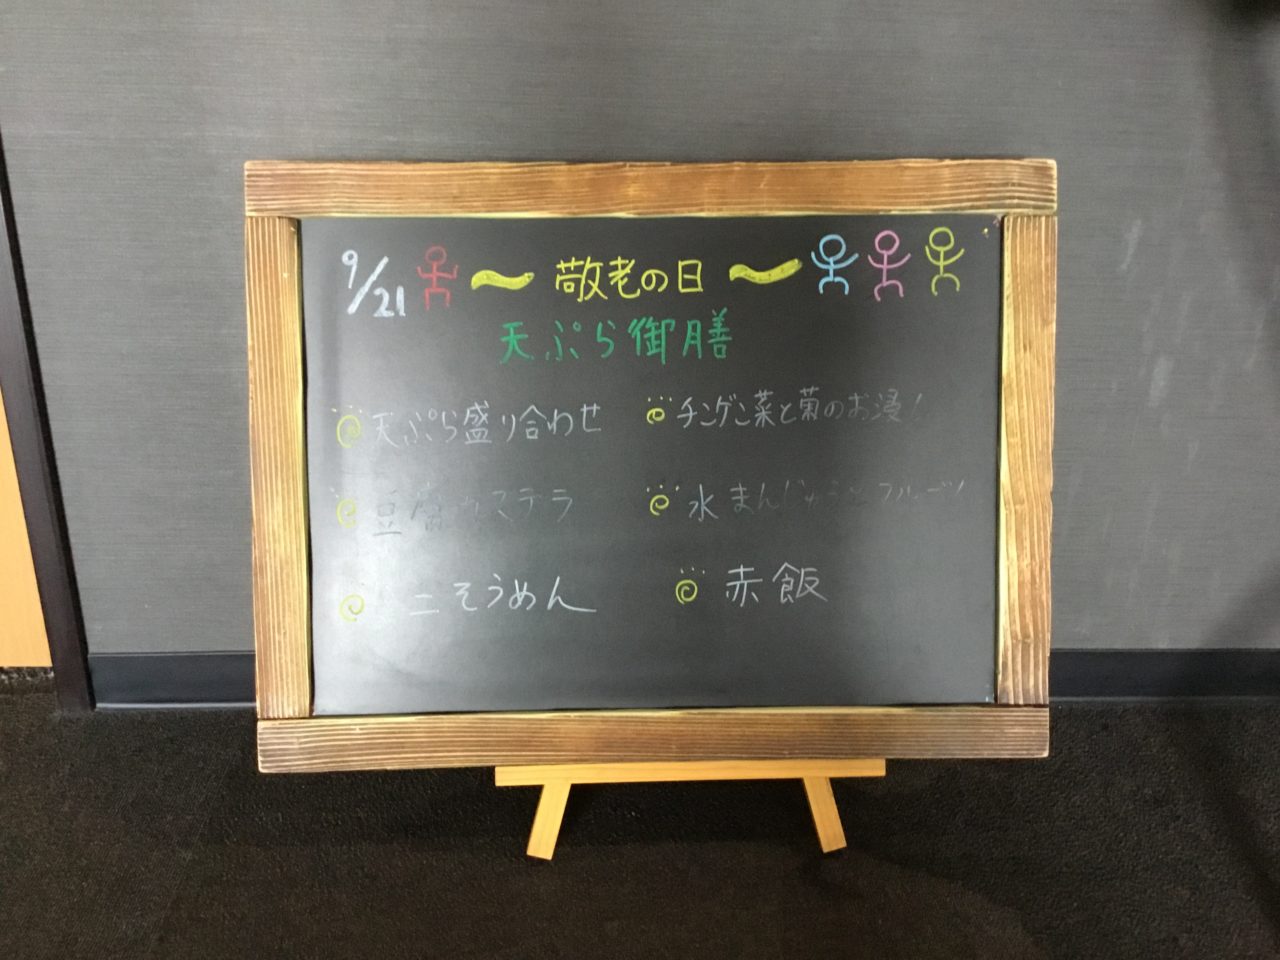 9/21 〜 敬老の日 〜
天ぷら御膳
天ぷら盛り合わせ
チンゲン菜と菊のお浸し
豆腐カステラ
水まんじゅうとフルーツ
ミニそうめん
赤飯